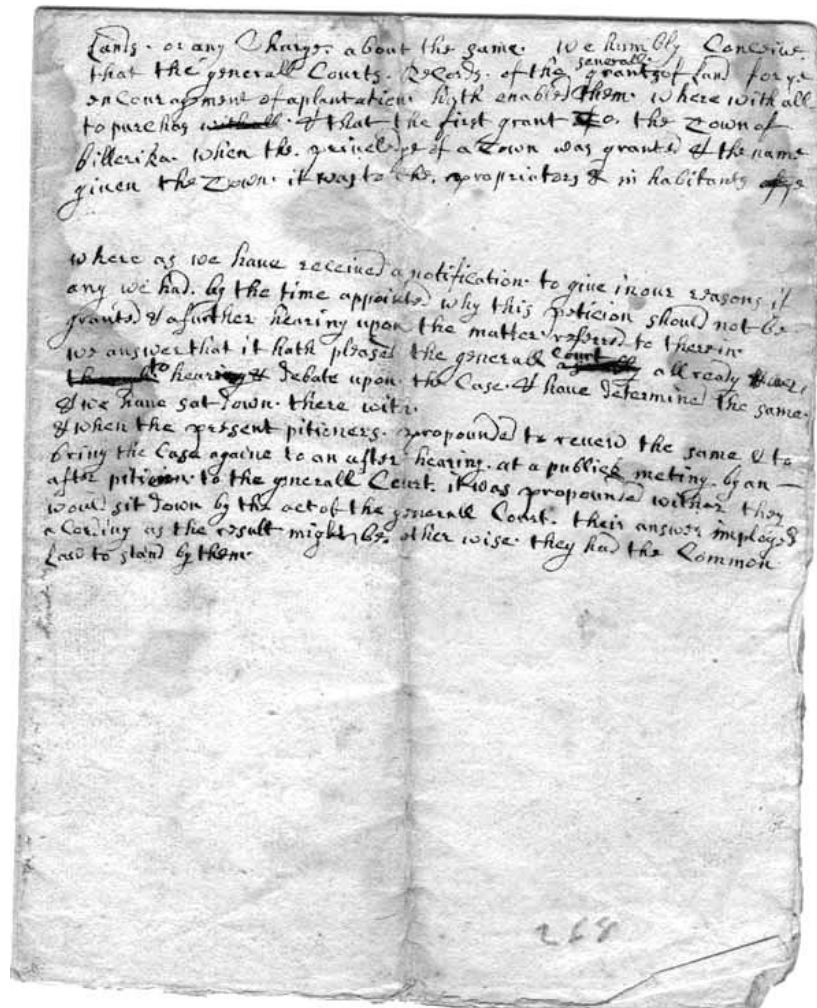 Lands. or any Charge. about the same. We humbly Conceive.
that the generall Courts. Records. of the generall grants of Land for ye
encouragement of a plantation. hath enabled them. where with all
to purchas withall. & that the first grant to the Town of
Billerika. when the. privelege of a Town was granted & the name
given the Town. it was to the. propriators & in habitants of ye
where as we have received a notification. to give in our reasons if
any we had. by the time appointed why this peticion should not be
granted & a further hearing upon the matter referred to therein.
we answer that it hath pleased the generall Court all ready
to hearing & debate upon. the Case. & have determined the same.
& we have sat down. there with.
& when the present pitioners. propounded to reveiw the same & to
bring the Case againe to an after hearing. at a publick meting. by an
after piticion. to the generall Court. it was propounded wither they
would sit down by the act of the generall Court. their answer imployed
a Cording as the result might be. other wise. they had the Common
Law to stand by them.
268